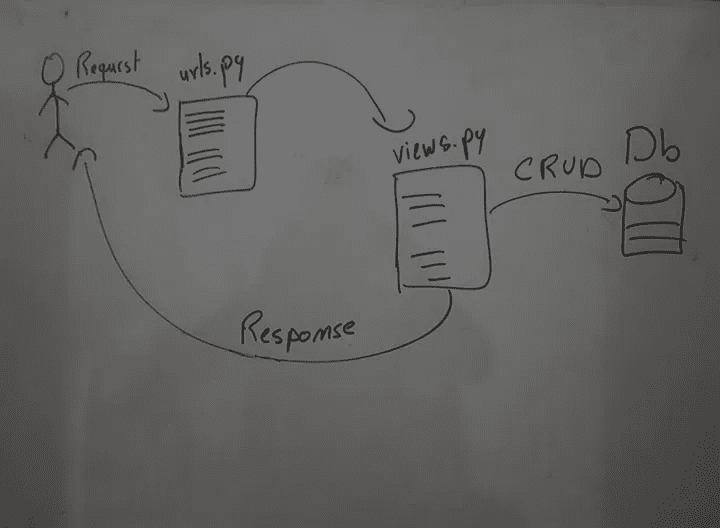 Request
urls.py
views.py
CRUD
Db
Response